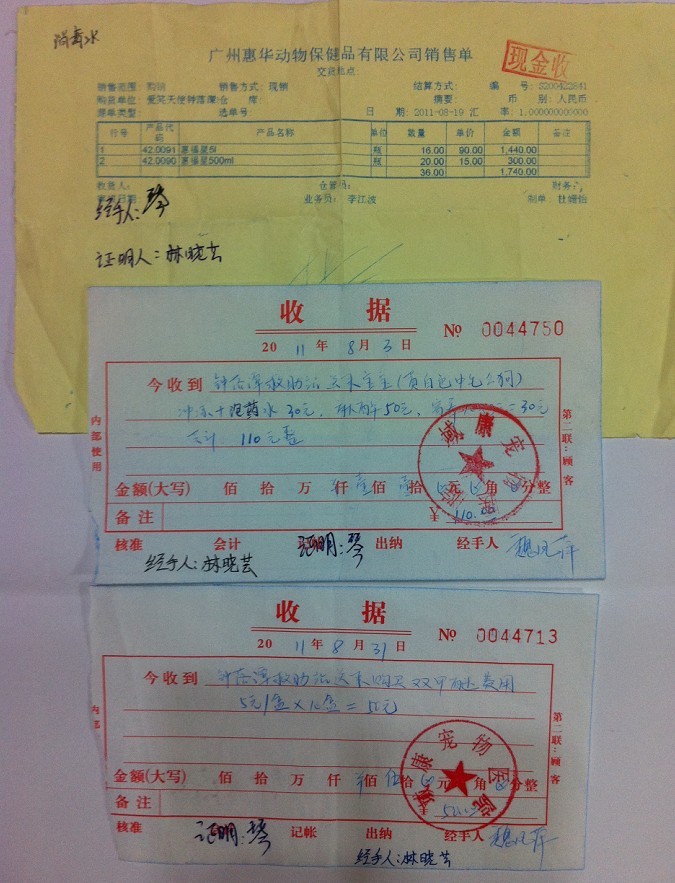 消毒水
广州惠华动物保健品有限公司销售单
现金收
交货地点:
销售范围: 购销 销售方式: 现销 结算方式: 编 号: S200422641
购货单位: 爱芙天使钟落潭 仓 库: 摘要: 币 别: 人民币
源单类型: 选单号: 日 期: 2011-08-19 汇 率: 1.000000000000
行号 产品代码 产品名称 单位 数量 单价 金额 备注
1 42.0091 惠福星5l 瓶 16.00 90.00 1,440.00
2 42.0090 惠福星500ml 瓶 20.00 15.00 300.00
36.00 1,740.00
收货人: 仓管员: 财务:
业务员: 李江波 制单: 杜嫦怡
经手人: 琴
证明人: 林晓芸
收 据
№ 0044750
20 11 年 8 月 3 日
今收到 钟落潭救助站
30元 50元 30元
合计 110元整
内部使用
第二联:顾客
金额(大写) 佰 拾 万 仟 壹 佰 壹 拾 元 角 分整
备注 110.00
威康宠物医院
核准 会计 证明: 琴 出纳 经手人
经手人: 林晓芸
收 据
№ 0044713
20 11 年 8 月 31 日
今收到 钟落潭救助站 购买双甲脒 费用
5元/盒
内部
第二联:顾客
金额(大写) 佰 拾 万 仟 佰 伍 拾 元 角 分整
备注
威康宠物医院
核准 证明: 琴 记帐 出纳 经手人
经手人: 林晓芸